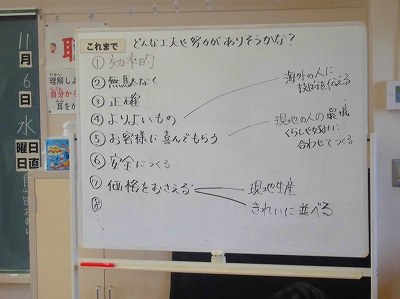 これまで どんな工夫や努力がありそうかな？
① 効率的
② 無駄なく
③ 正確
④ よりよいもの
海外の人に
技術を伝える
⑤ お客様に喜んでもらう
現地の人の意識
くらしや文化に
合わせてつくる
⑥ 安全につくる
⑦ 価格をおさえる
現地生産
きれいに並べる
⑧
11月6日水曜日
日直
理解しよう
自分から
耳を